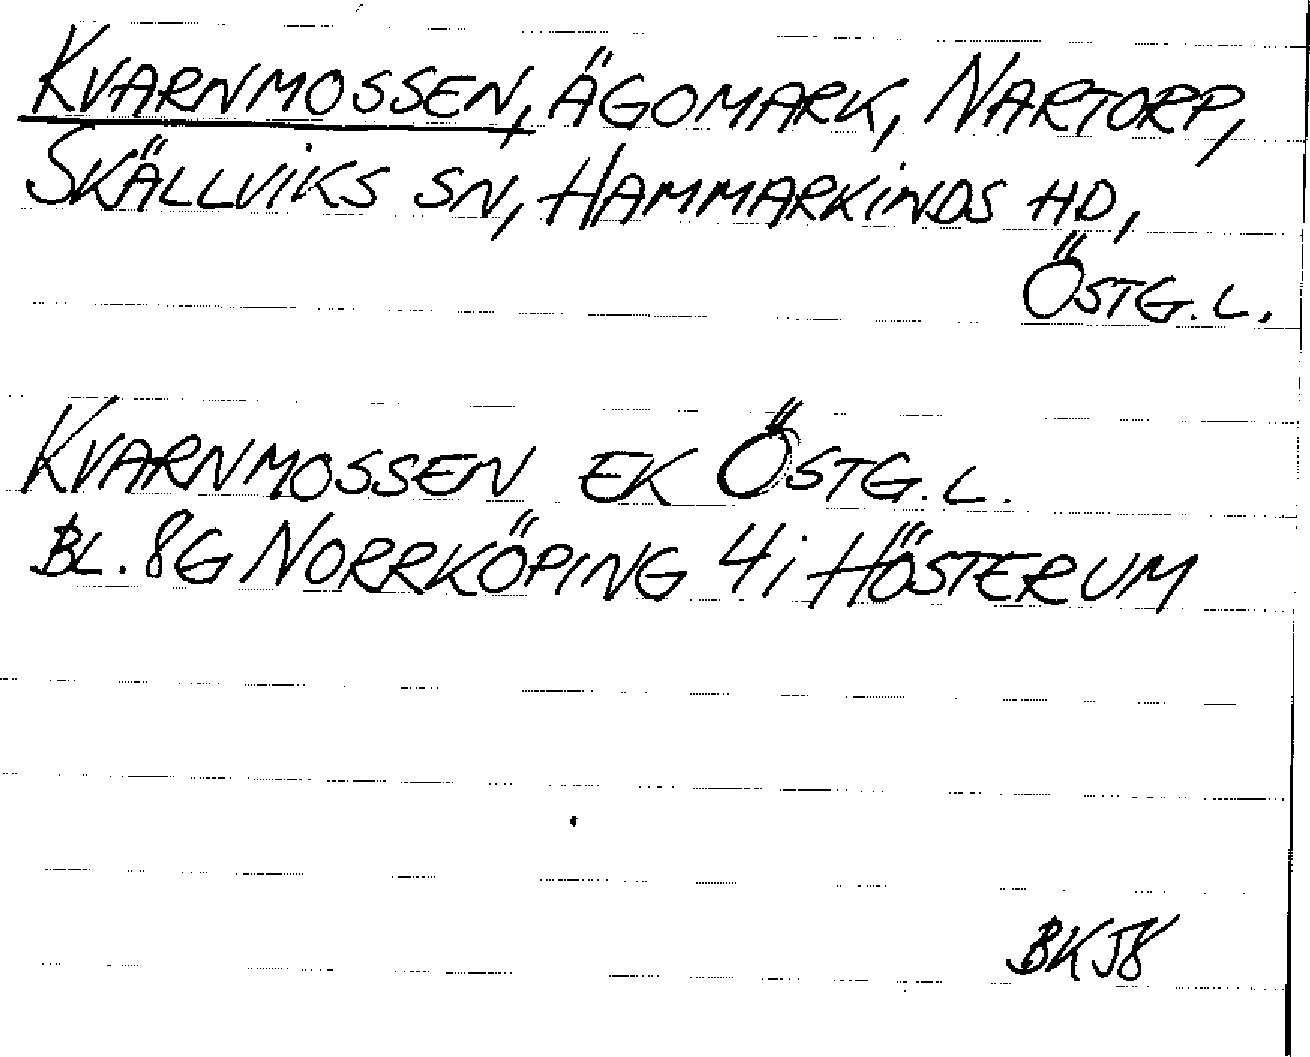 KVARNMOSSEN, ÄGOMARK, NARTORP,
SKÄLLVIKS SN, HAMMARKINDS HD,
ÖSTG.L.
KVARNMOSSEN EK ÖSTG.L.
BL. 8G NORRKÖPING 4i HÖSTERUM